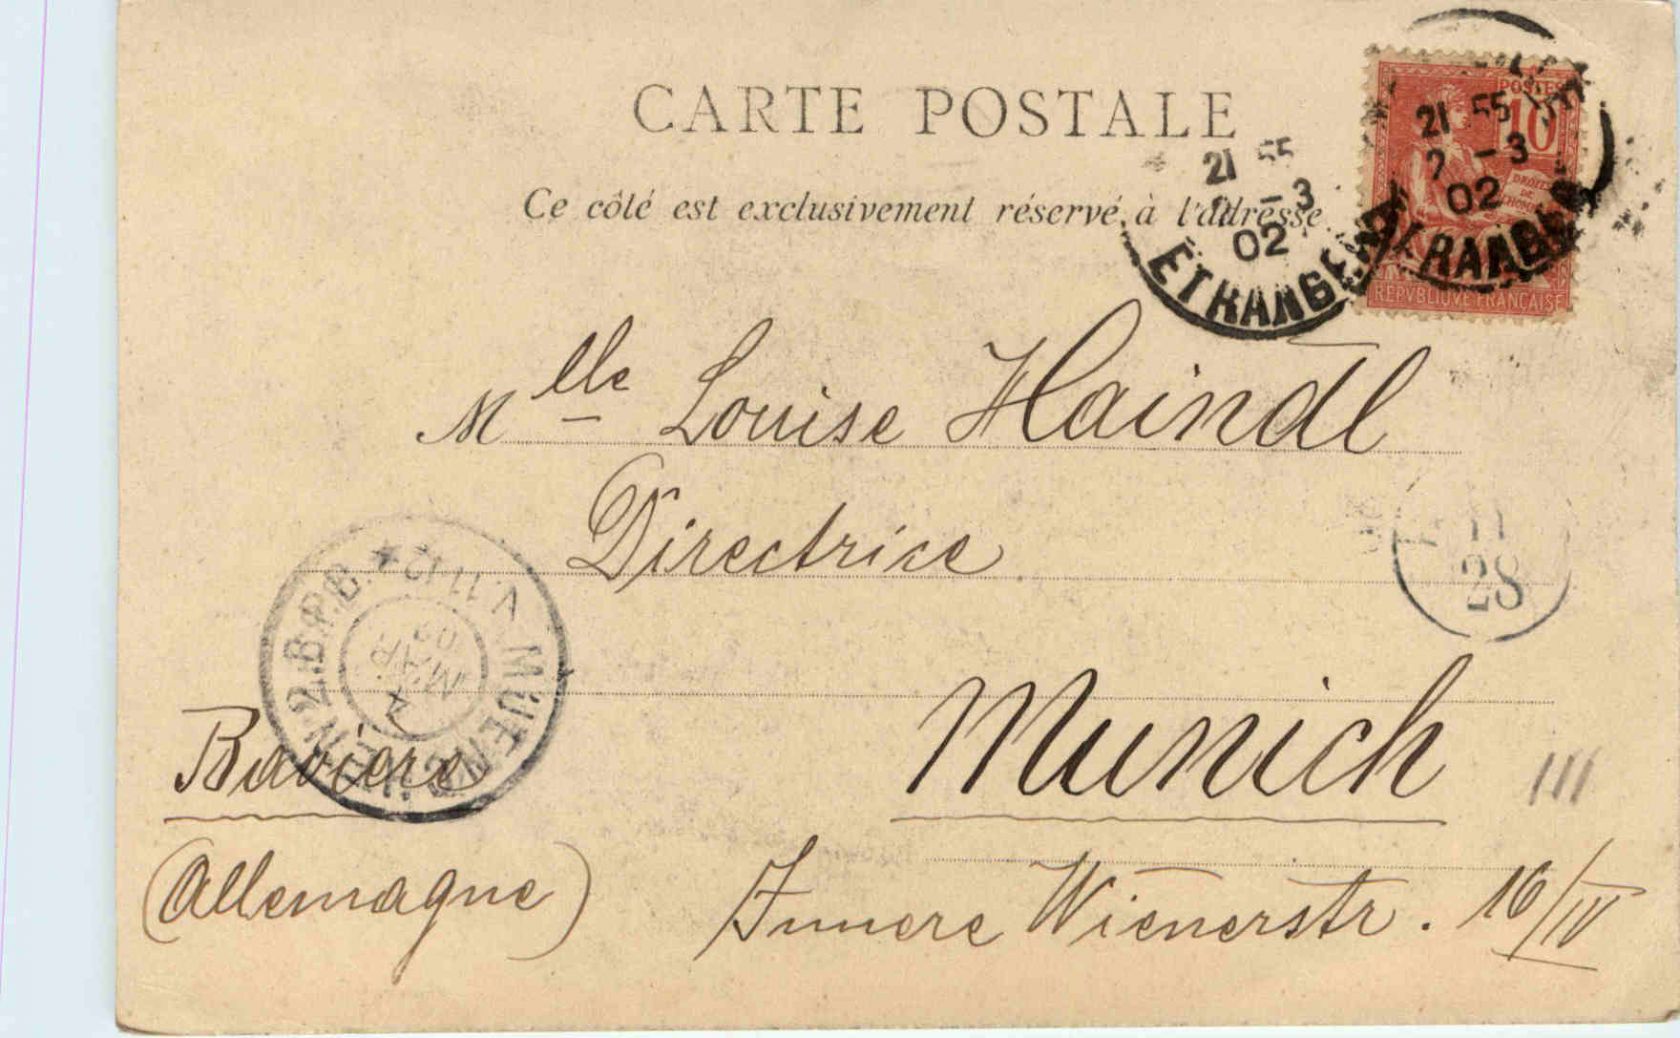 CARTE POSTALE
Ce côté est exclusivement réservé à l'adresse
POSTES
10
DROITS
DE
REPVBLIQVE FRANCAISE
21 55
2 -3
02
ETRANGER
21 55
-3
02
ETRANGER
Mlle Louise Haindl
Directrice
11
28
MUENCHEN 2.B.P.B. V.11-12
4
MAR
Munich
III
Bavière
(Allemagne)
Innere Wienerstr. 16/IV